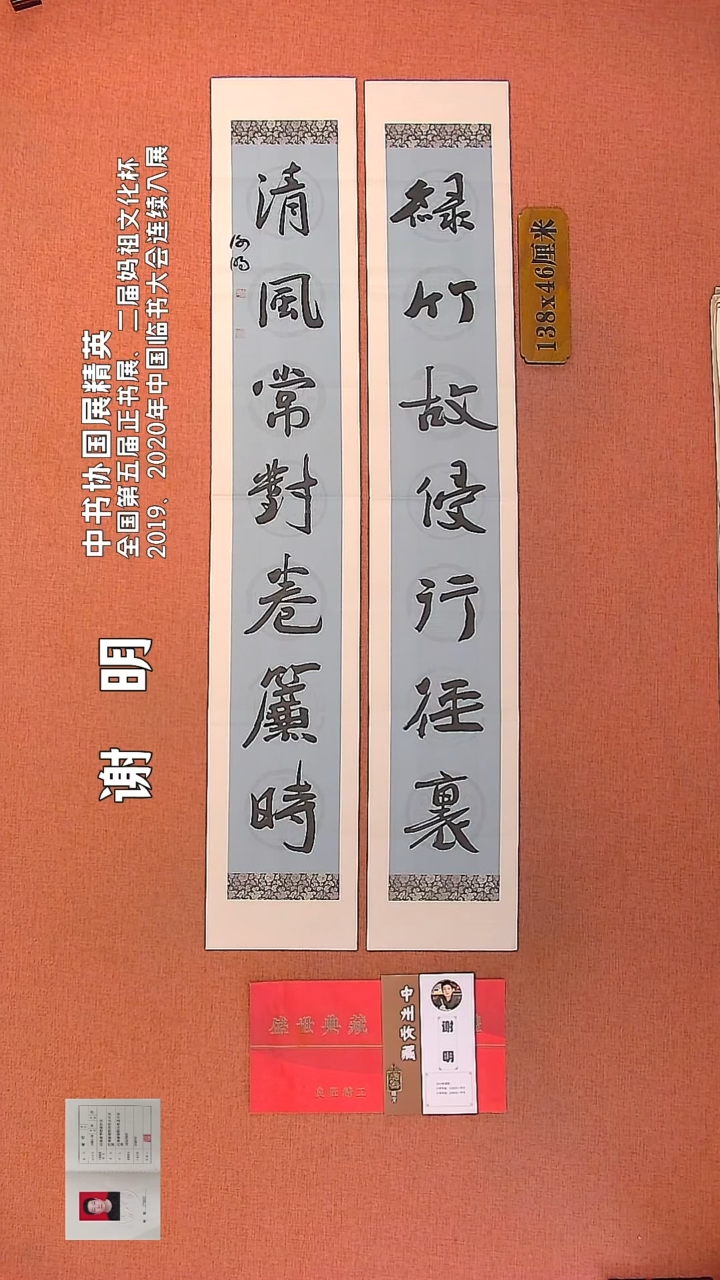 緑竹故侵行徑裏
清風常對卷簾時
138x46厘米
中书协国展精英
全国第五届正书展、二届妈祖文化杯
2019、2020年中国临书大会连续入展
谢 明
盛世典藏
中州收藏
谢 明